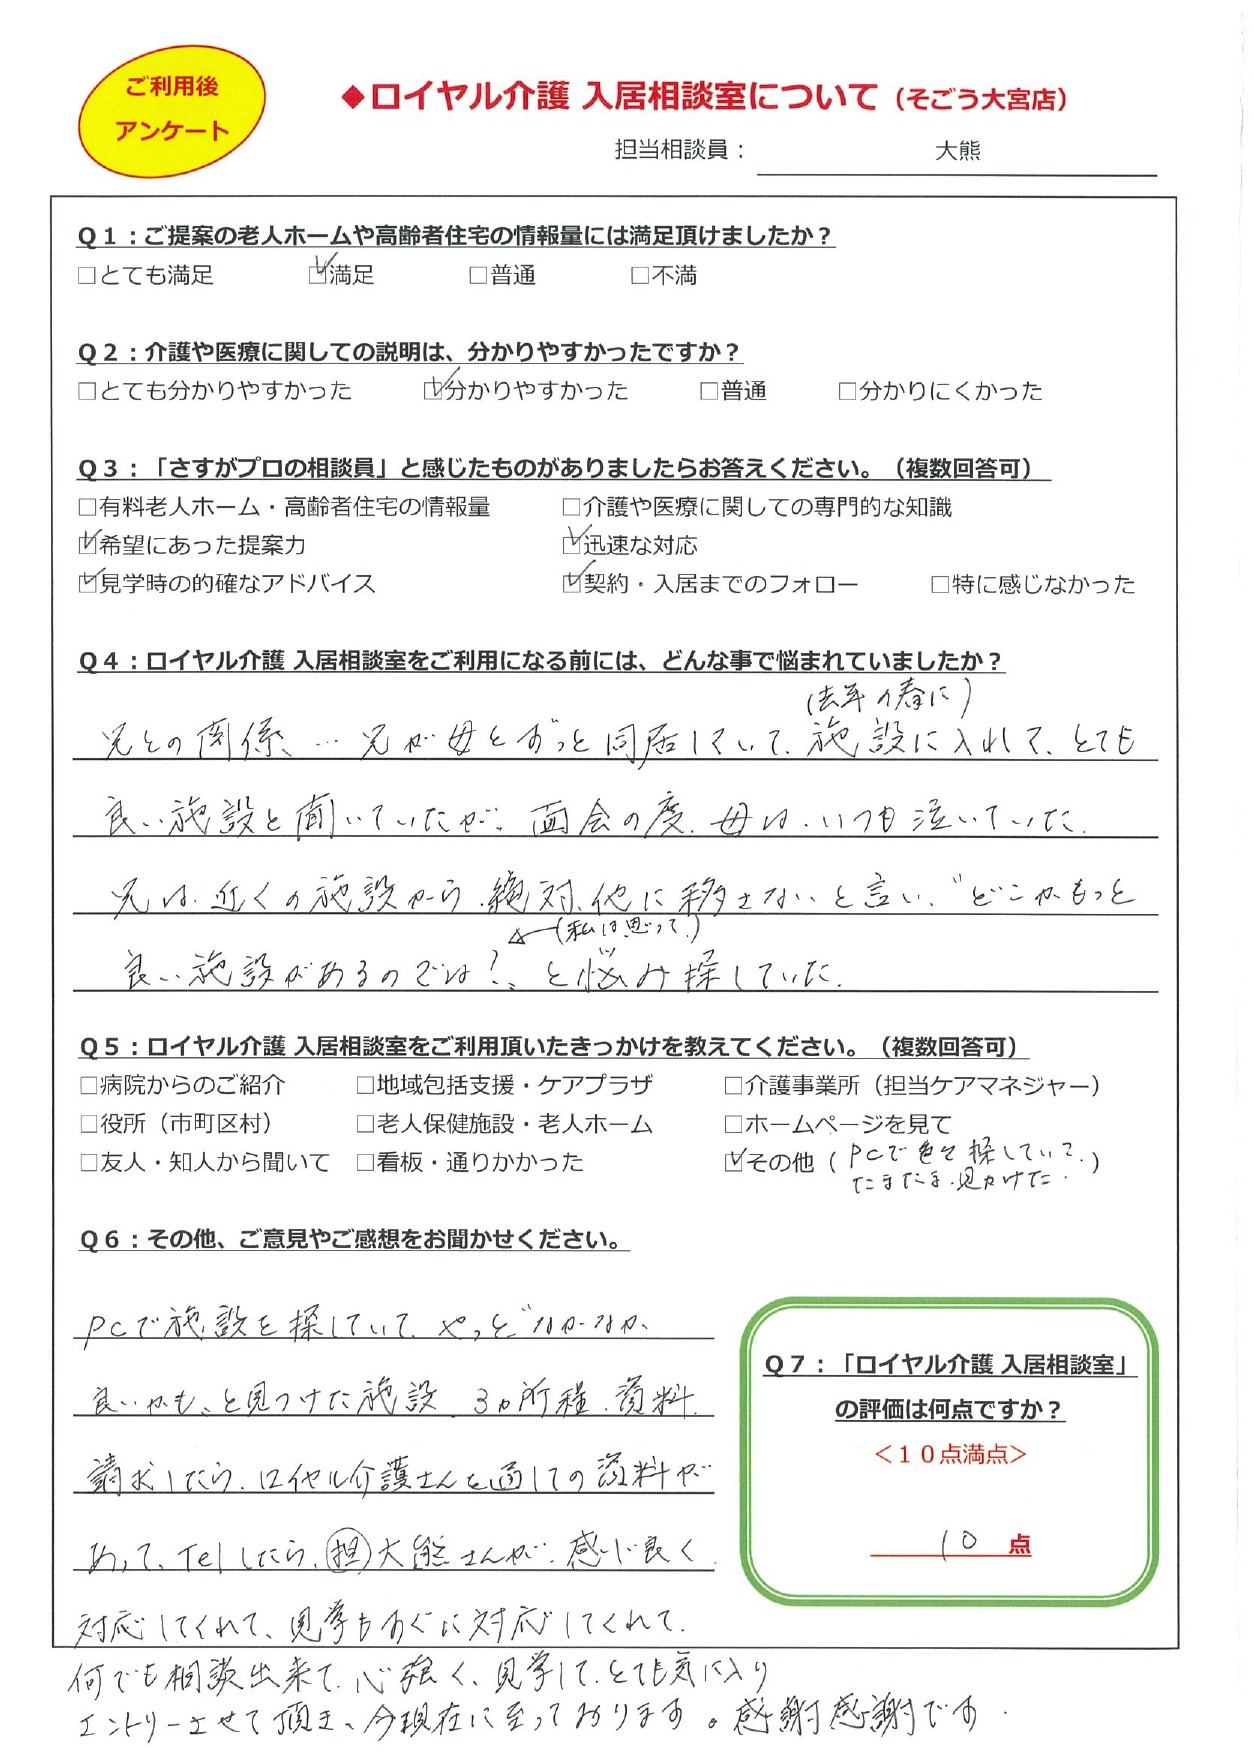 ご利用後
アンケート
◆ロイヤル介護 入居相談室について（そごう大宮店）
担当相談員： 大熊
Q1：ご提案の老人ホームや高齢者住宅の情報量には満足頂けましたか？
□とても満足 ☑満足 □普通 □不満
Q2：介護や医療に関しての説明は、分かりやすかったですか？
□とても分かりやすかった ☑分かりやすかった □普通 □分かりにくかった
Q3：「さすがプロの相談員」と感じたものがありましたらお答えください。（複数回答可）
□有料老人ホーム・高齢者住宅の情報量 □介護や医療に関しての専門的な知識
☑希望にあった提案力 ☑迅速な対応
☑見学時の的確なアドバイス ☑契約・入居までのフォロー □特に感じなかった
Q4：ロイヤル介護 入居相談室をご利用になる前には、どんな事で悩まれていましたか？
(去年の春に)
兄との関係、… 兄が母とずっと同居していて、施設に入れて、とても
良い施設と聞いていたが、面会の度、母は、いつも泣いていた。
兄は、近くの施設から、絶対、他に移さないと言い、"どこかもっと
←(私は思って、)
良い施設があるのでは!、と悩み探していた。
Q5：ロイヤル介護 入居相談室をご利用頂いたきっかけを教えてください。（複数回答可）
□病院からのご紹介 □地域包括支援・ケアプラザ □介護事業所（担当ケアマネジャー）
□役所（市町区村） □老人保健施設・老人ホーム □ホームページを見て
□友人・知人から聞いて □看板・通りかかった ☑その他（PCで色々探していて、
たまたま、見かけた。）
Q6：その他、ご意見やご感想をお聞かせください。
PCで施設を探していて、やっと"なかなか、
良いかも、と見つけた施設、3ヵ所程、資料
請求したら、ロイヤル介護さんを通しての資料が
あって、Telしたら、担 大熊さんが、感じ良く
対応してくれて、見学もすぐに対応してくれて、
何でも相談出来て、心強く、見学して、とても気に入り
エントリーさせて頂き、今現在に至っております。感謝感謝です。
Q7：「ロイヤル介護 入居相談室」
の評価は何点ですか？
＜１０点満点＞
10 点